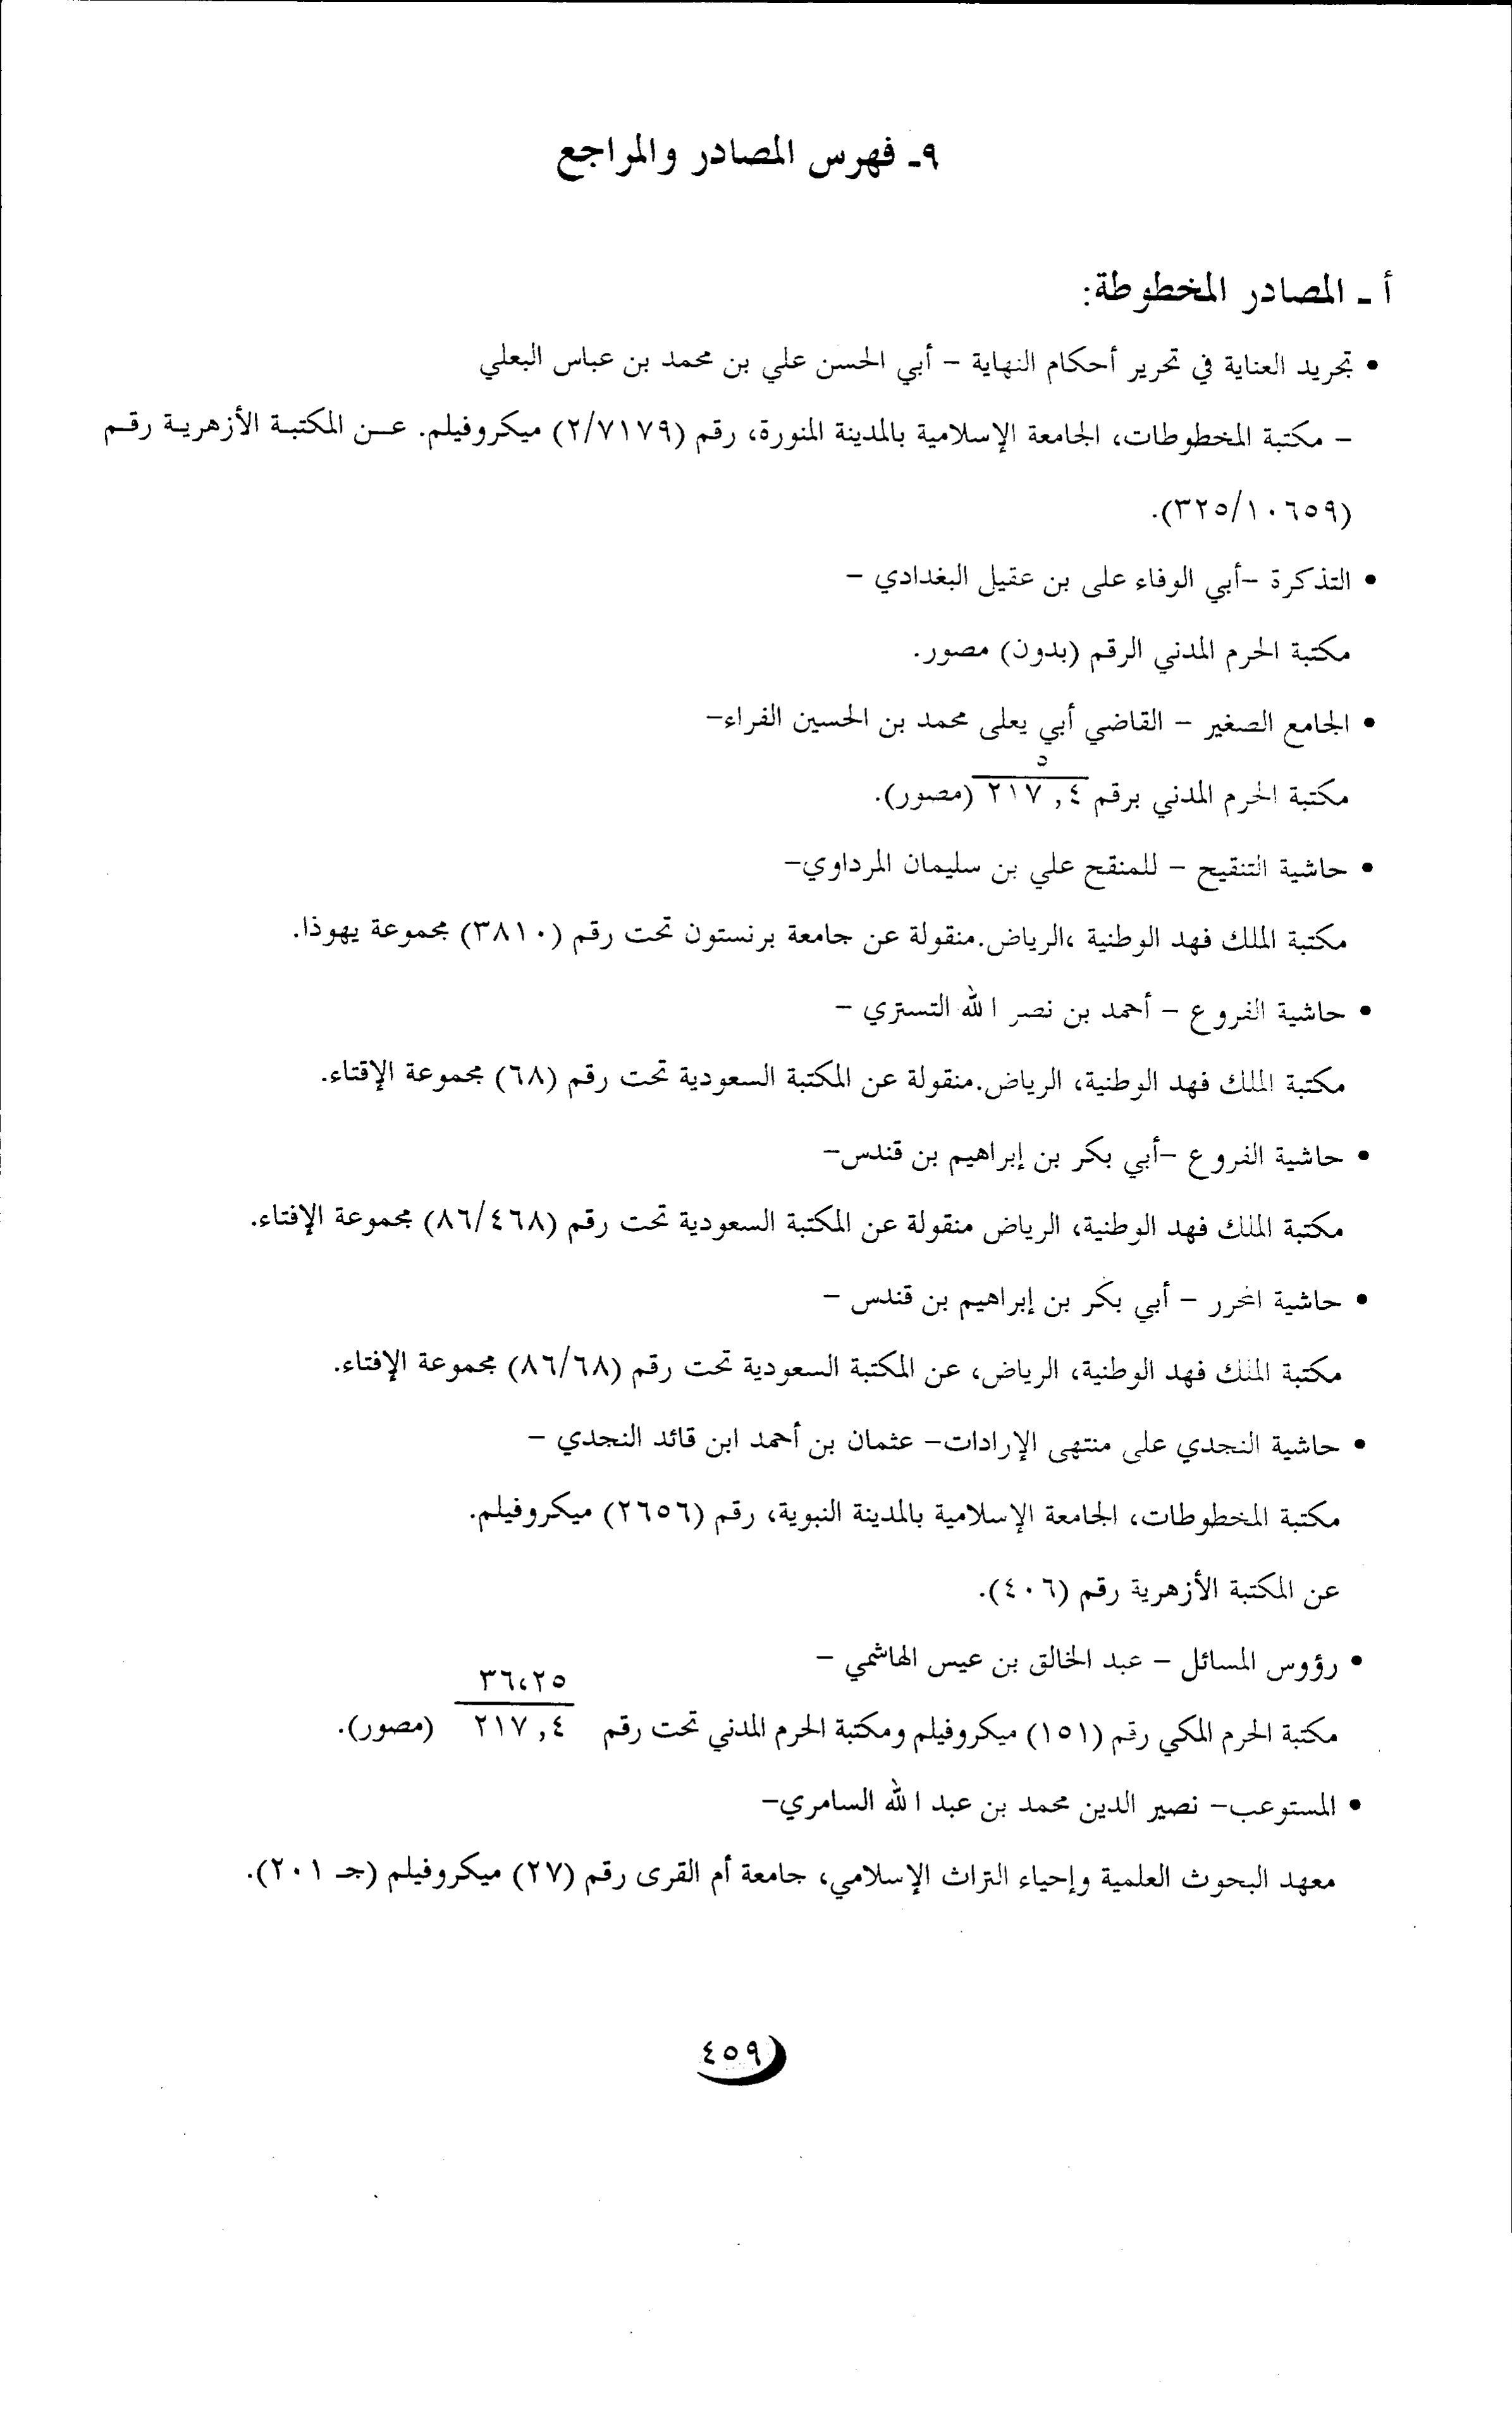 ٩ـ فهرس المصادر والمراجع
أ ـ المصادر المخطوطة:
• تجريد العناية في تحرير أحكام النهاية – أبي الحسن علي بن محمد بن عباس البعلي
– مكتبة المخطوطات، الجامعة الإسلامية بالمدينة المنورة، رقم (٢/٧١٧٩) ميكروفيلم. عن المكتبة الأزهرية رقم
(٣٢٥/١٠٦٥٩).
• التذكرة –أبي الوفاء على بن عقيل البغدادي –
مكتبة الحرم المدني الرقم (بدون) مصور.
• الجامع الصغير – القاضي أبي يعلى محمد بن الحسين الفراء–
د
مكتبة الحرم المدني برقم ٢١٧,٤ (مصور).
• حاشية التنقيح – للمنقح علي بن سليمان المرداوي–
مكتبة الملك فهد الوطنية ،الرياض.منقولة عن جامعة برنستون تحت رقم (٣٨١٠) مجموعة يهوذا.
• حاشية الفروع – أحمد بن نصر الله التستري –
مكتبة الملك فهد الوطنية، الرياض.منقولة عن المكتبة السعودية تحت رقم (٦٨) مجموعة الإقتاء.
• حاشية الفروع –أبي بكر بن إبراهيم بن قندس–
مكتبة الملك فهد الوطنية، الرياض منقولة عن المكتبة السعودية تحت رقم (٨٦/٤٦٨) مجموعة الإفتاء.
• حاشية المحرر – أبي بكر بن إبراهيم بن قندس –
مكتبة الملك فهد الوطنية، الرياض، عن المكتبة السعودية تحت رقم (٨٦/٦٨) مجموعة الإفتاء.
• حاشية النجدي على منتهى الإرادات– عثمان بن أحمد ابن قائد النجدي –
مكتبة المخطوطات، الجامعة الإسلامية بالمدينة النبوية، رقم (٢٦٥٦) ميكروفيلم.
عن المكتبة الأزهرية رقم (٤٠٦).
• رؤوس المسائل – عبد الخالق بن عيس الهاشمي –
٣٦،٢٥
مكتبة الحرم المكي رقم (١٥١) ميكروفيلم ومكتبة الحرم المدني تحت رقم ٢١٧,٤ (مصور).
• المستوعب– نصير الدين محمد بن عبد الله السامري–
معهد البحوث العلمية وإحياء التراث الإسلامي، جامعة أم القرى رقم (٢٧) ميكروفيلم (جـ ٢٠١).
٤٥٩